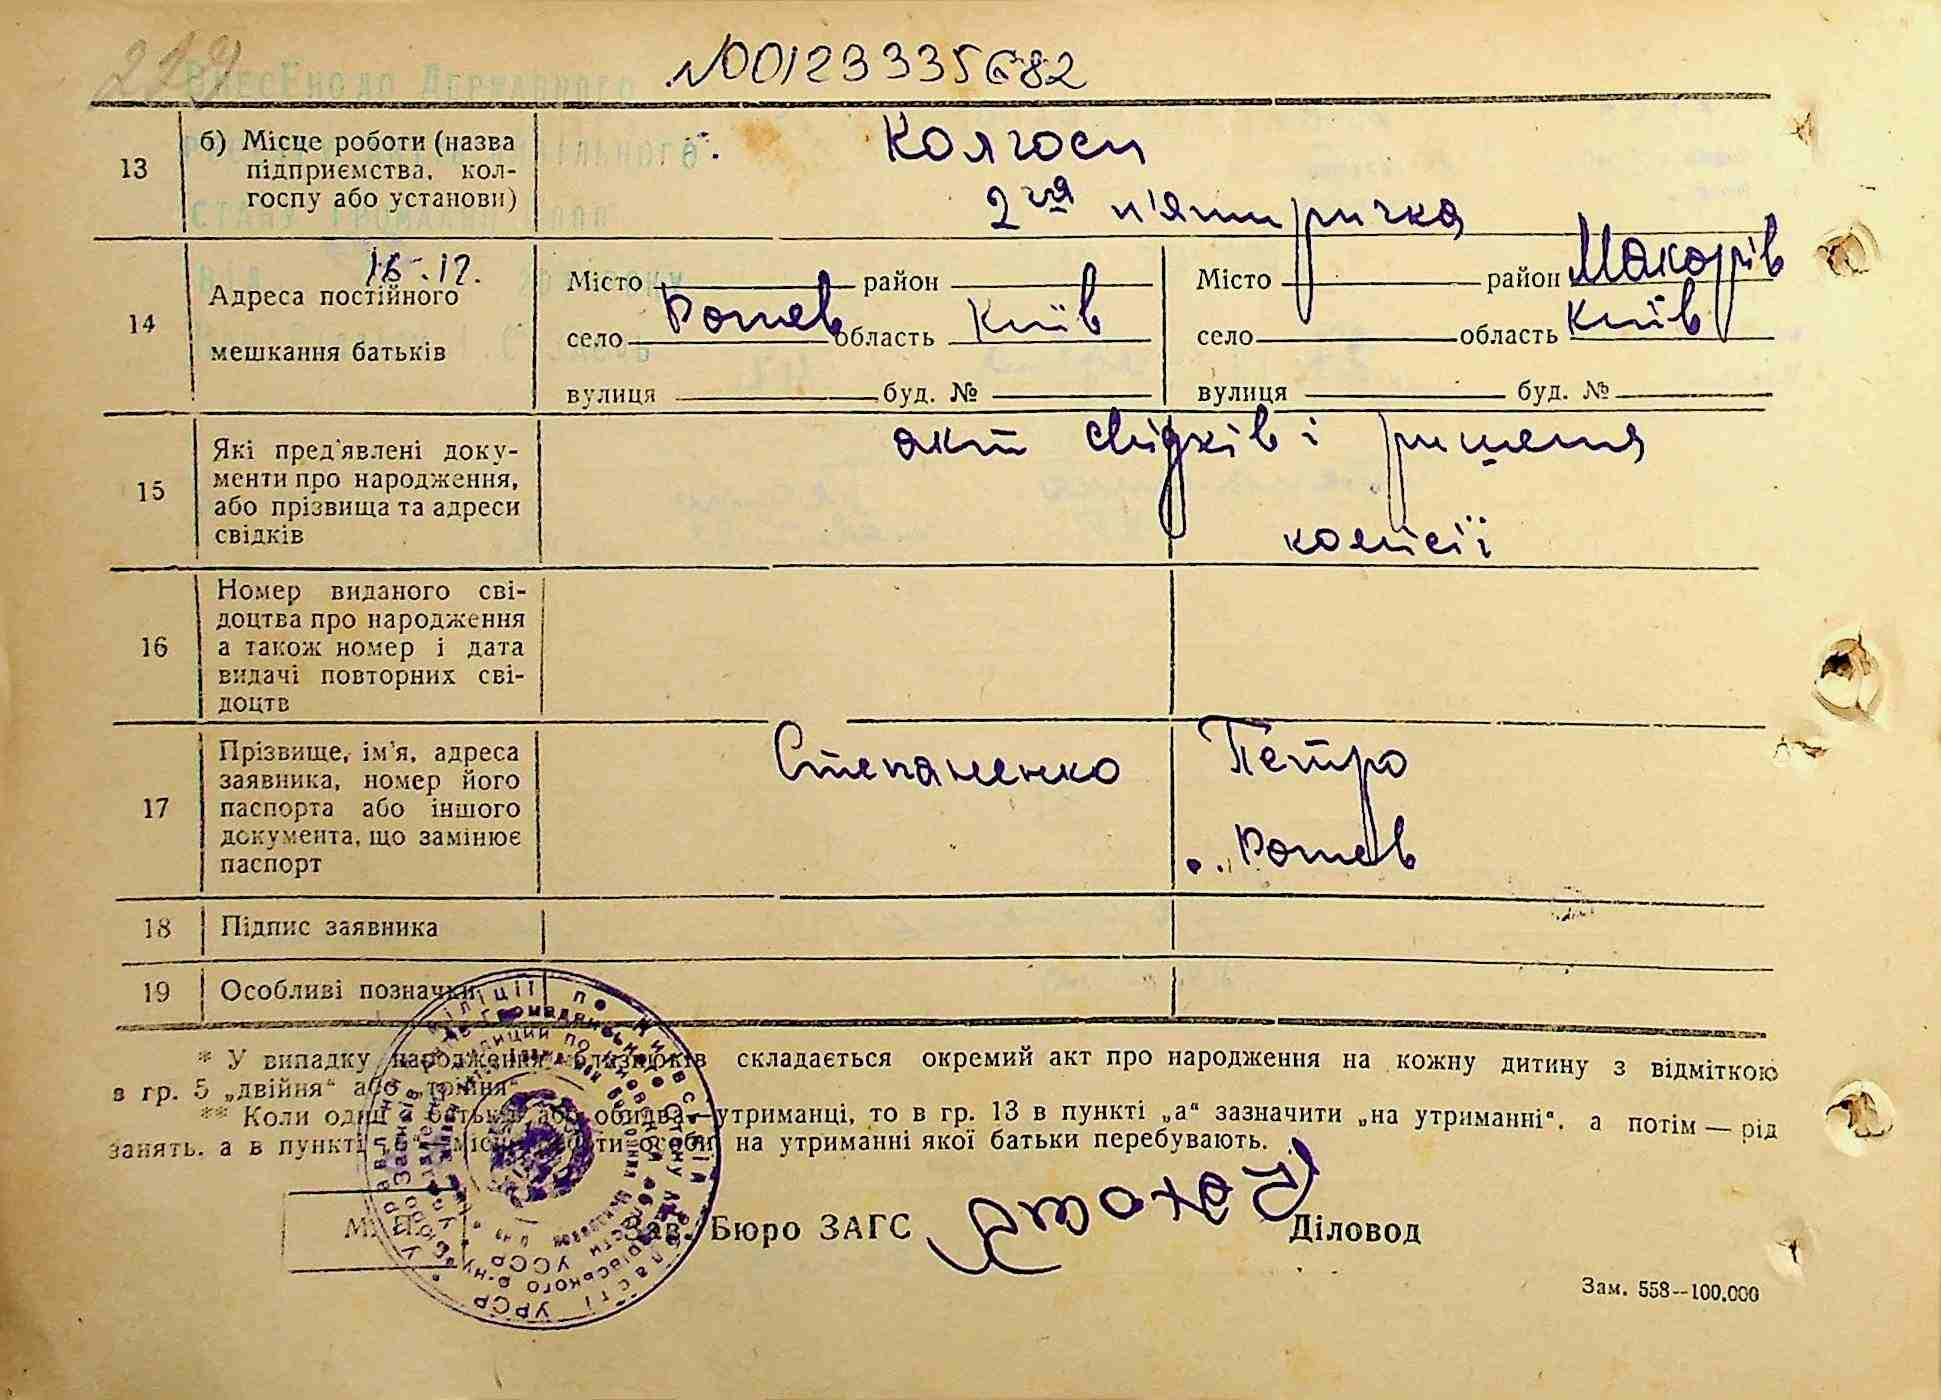 229
№00123335682
ВнесЕно до Державного
13
б) Місце роботи (назва
підприємства, кол-
госпу або установи)
Колгосп
2га п'ятирічка
14
16.12.
Адреса постійного
мешкання батьків
Місто район
село область Київ
вулиця буд. №
Місто район Макарів
село область Київ
вулиця буд. №
15
Які пред'явлені доку-
менти про народження,
або прізвища та адреси
свідків
акт свідків і рішення
комісії
16
Номер виданого сві-
доцтва про народження
а також номер і дата
видачі повторних сві-
доцтв
17
Прізвище, ім'я, адреса
заявника, номер його
паспорта або іншого
документа, що замінює
паспорт
Степаненко Петро
18
Підпис заявника
19
Особливі позначки
* У випадку народження близнюків складається окремий акт про народження на кожну дитину з відміткою
в гр. 5 „двійня“ або „трійня“
** Коли один з батьків або обидва—утриманці, то в гр. 13 в пункті „а“ зазначити „на утриманні“, а потім — рід
занять, а в пункті місце роботи особи, на утриманні якої батьки перебувають.
М. П.
Зав. Бюро ЗАГС
Діловод
Зам. 558—100.000